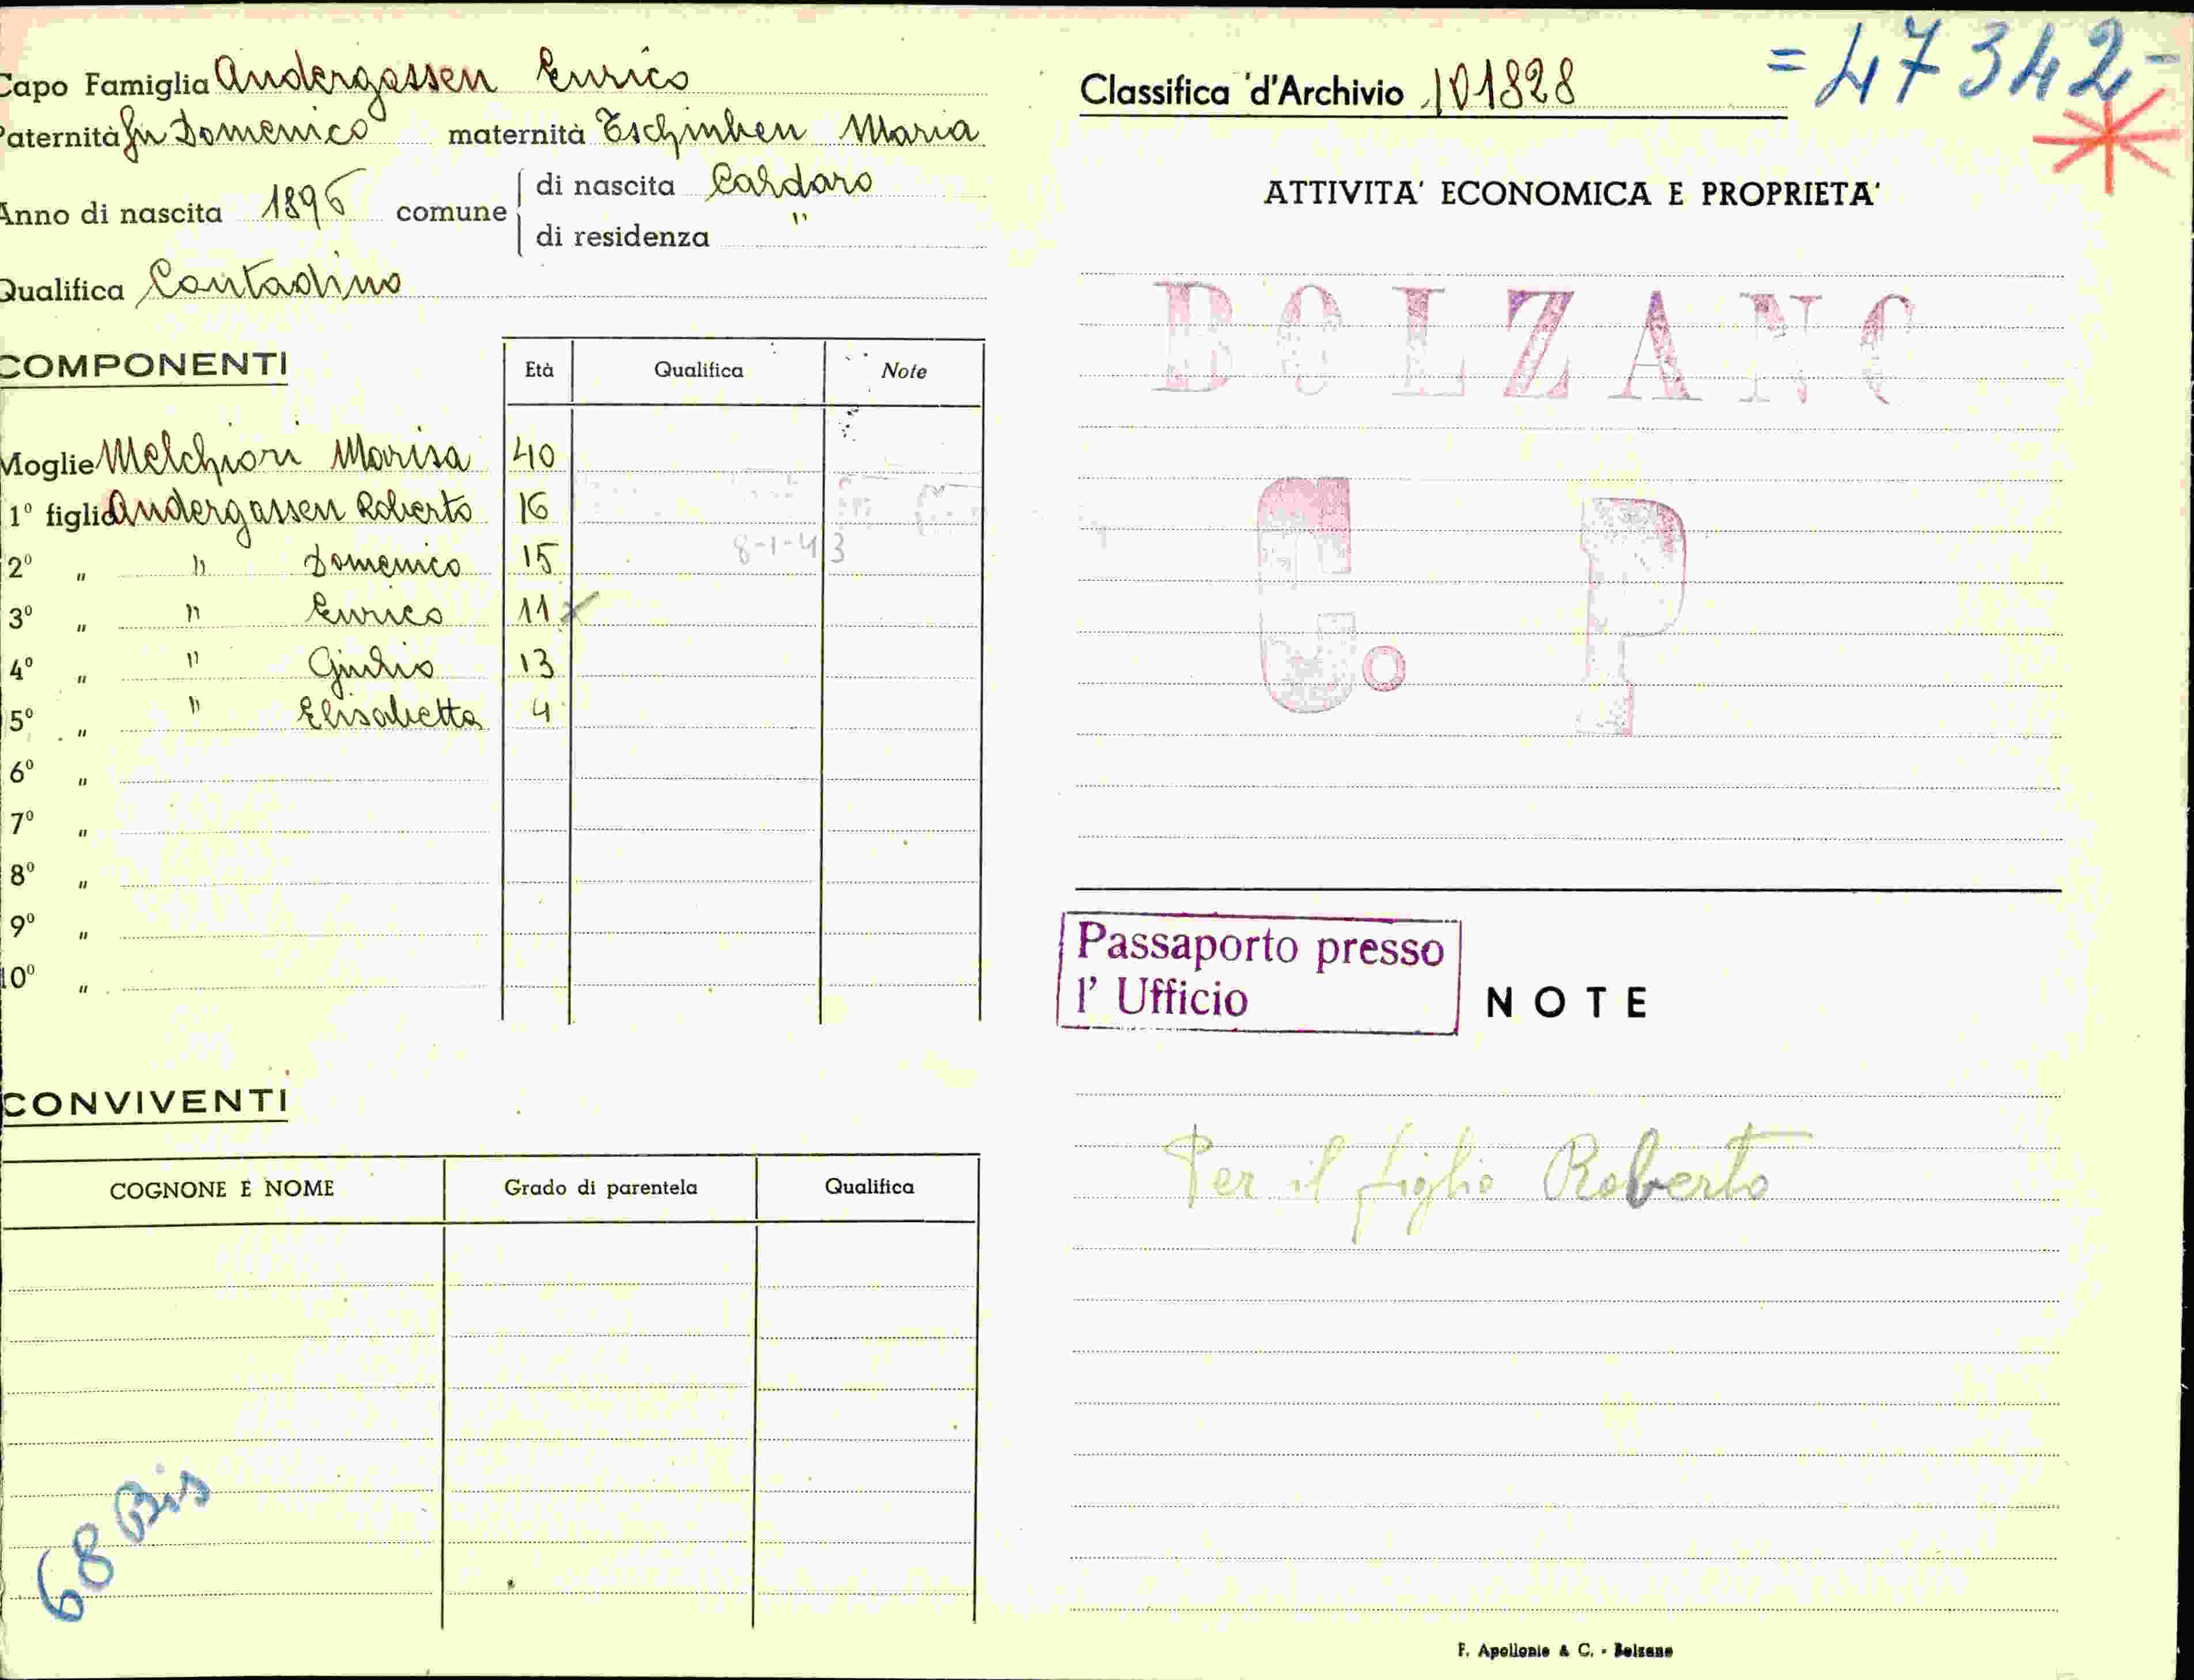 Capo Famiglia Andergassen Enrico
Paternità fu Domenico maternità Maria
Anno di nascita 1896 comune di nascita Caldaro
di residenza "
Qualifica Contadino
COMPONENTI Età Qualifica Note
Moglie Melchiori Marisa 40
1º figlio Andergassen Roberto 16
8-1-43
2º " " Domenico 15
3º " " Enrico 11 x
4º " " Giulio 13
5º " " Elisabetta 4
6º "
7º "
8º "
9º "
10º "
CONVIVENTI
COGNONE E NOME Grado di parentela Qualifica
68 Bis
= 47342 -
Classifica d'Archivio 101828
ATTIVITA' ECONOMICA E PROPRIETA'
BOLZANO
C. P
Passaporto presso
l' Ufficio
NOTE
Per il figlio Roberto
F. Apollonio & C. - Bolzano